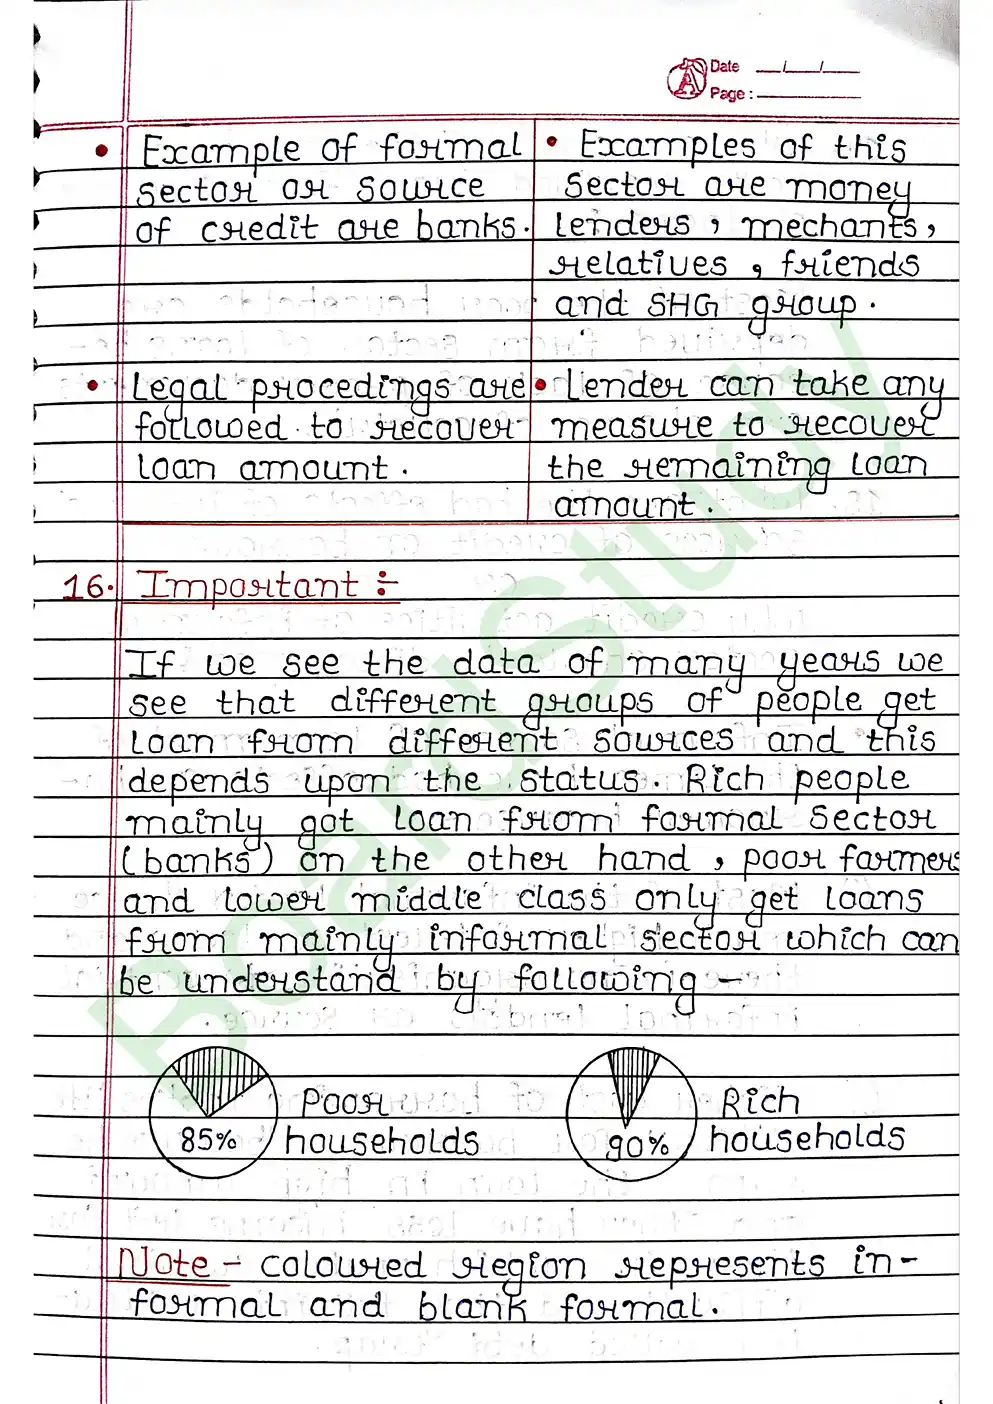 Date __/__/__
Page:
• Example of formal
sector or source
of credit are banks.
• Examples of this
sector are money
lenders, mechants,
relatives, friends
and SHG group.
• Legal procedings are
followed to recover
loan amount.
• Lender can take any
measure to recover
the remaining loan
amount.
16. Important :-
If we see the data of many years we
see that different groups of people get
loan from different sources and this
depends upon the status. Rich people
mainly got loan from formal sector
(banks) on the other hand, poor farmers
and lower middle class only get loans
from mainly informal sector which can
be understand by following -
85%
Poor
households
90%
Rich
households
Note - coloured region represents in-
formal and blank formal.
BoardStudy